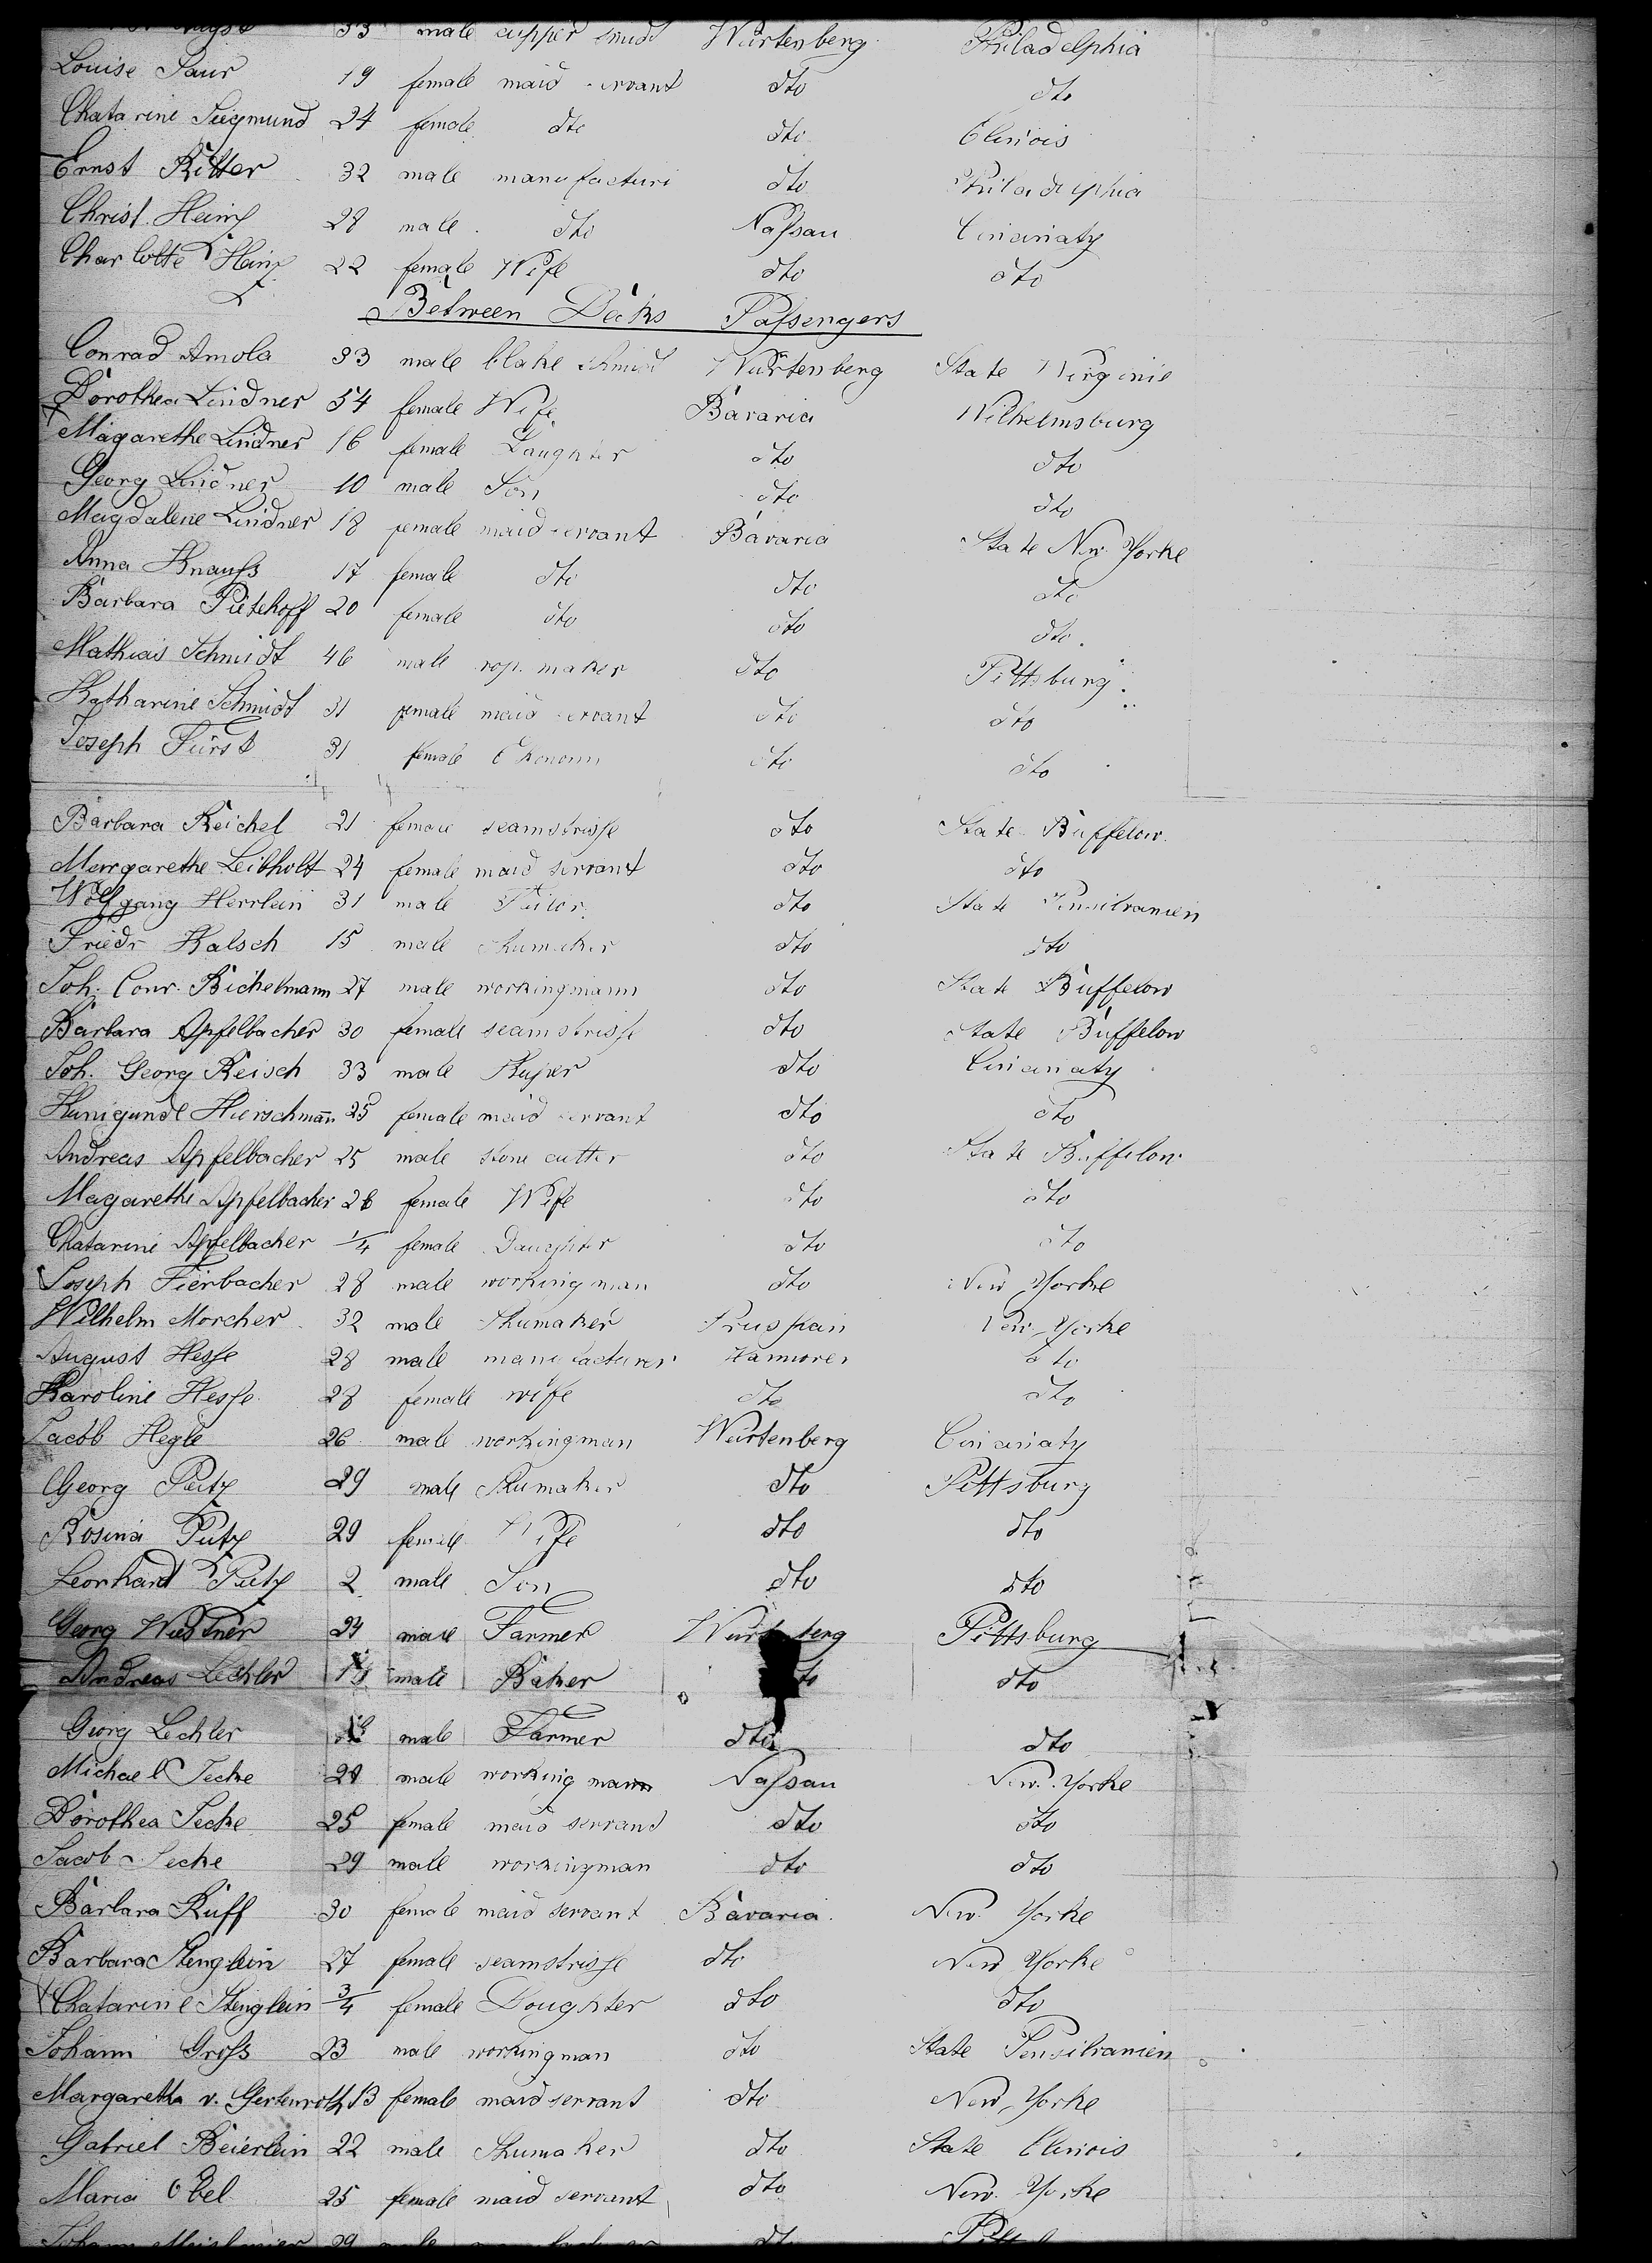 33 male cupper smidt Würtenberg Philadelphia
Louise Saur 19 female maid servant dto dto
Chatarine Siegmund 24 female dto dto Elinois
Ernst Ritter 32 male manufacturi dto Philadelphia
Christ. Heinz 28 male dto Naſsau Cincinaty
Charlotte Heinz 22 female Wife dto dto
Between Decks Paſsengers
Conrad Amola 33 male blake schmid Würtenberg State Wirginie
Dorothea Lindner 54 female Wife Bavaria Wilhelmsburg
Magarethe Lindner 16 female Daughter dto dto
Georg Lindner 10 male Son dto dto
Magdalene Lindner 18 female maid servant Bavaria State New Yorke
Anna Knauſs 17 female dto dto dto
Barbara Pietehoff 20 female dto dto dto
Mathias Schmidt 46 male rop. maker dto Pittsburg
Katharine Schmidt 31 female maid servant dto dto
Joseph Fürst 31 female Ekonom dto dto
Barbara Reichel 21 female seamstriſse dto State Buffelow
Margarethe Leibholt 24 female maid servant dto dto
Wolfgang Herrlein 31 male Tailor dto State Pensilvanien
Friedr Kalsch 15 male shumaker dto dto
Joh. Conr. Bichelmann 27 male workingmann dto State Buffelow
Barbara Apfelbacher 30 female seamstriſse dto State Büffelow
Joh. Georg Reisch 33 male Kuper dto Cincinaty
Kunigunde Hierschmañ 25 female maid servant dto dto
Andreas Apfelbacher 25 male stone cutter dto State Buffelow
Magarethe Apfelbacher 26 female Wife dto dto
Chatarine Apfelbacher 1/4 female Daughter dto dto
Joseph Fierbacher 28 male workingman dto New Yorke
Wilhelm Morcher 32 male Shumaker Pruſsian New Yorke
August Heſse 28 male manufacturer Hannover dto
Karoline Heſse 28 female wife dto dto
Jacob Hegle 26 male workingman Würtenberg Cincinaty
Georg Putz 29 male Shumaker dto Pittsburg
Rosina Putz 29 female Wife dto dto
Leonhard Putz 2 male Son dto dto
Georg Wüstner 24 male Farmer Würtenberg Pittsburg
Andreas Lechler male Baker dto dto
Georg Lechler male Farmer dto dto
Michael Jecke 28 male working mann Naſsau New Yorke
Dorothea Jecke 25 female maid servand dto dto
Jacob Jecke 29 male workingman dto dto
Barbara Ruff 30 female maid servant Bavaria New Yorke
Barbara Stenglein 27 female seamstriſse dto New Yorke
Chatarine Stenglein 3/4 female Doughter dto dto
Johann Groſs 23 male workingman dto State Pensilvanien
Margaretha v. Gertenroth 13 female maid servant dto New Yorke
Gabriel Beierlein 22 male Shumaker dto State Elinois
Maria Obel 25 female maid servant dto New Yorke
Johann 29 male dto